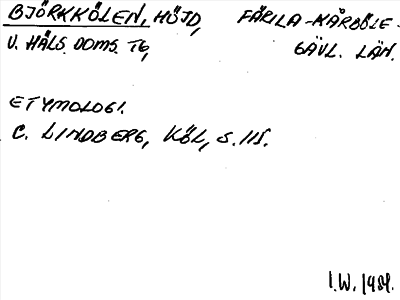 BJÖRKKÖLEN, HÖJD, FÄRILA-KÅRBÖLE-
V. HÄLS. DOMS. TG, GÄVL. LÄN.
ETYMOLOGI.
C. LINDBERG, KÖL, S. 115.
I.W. 1984.